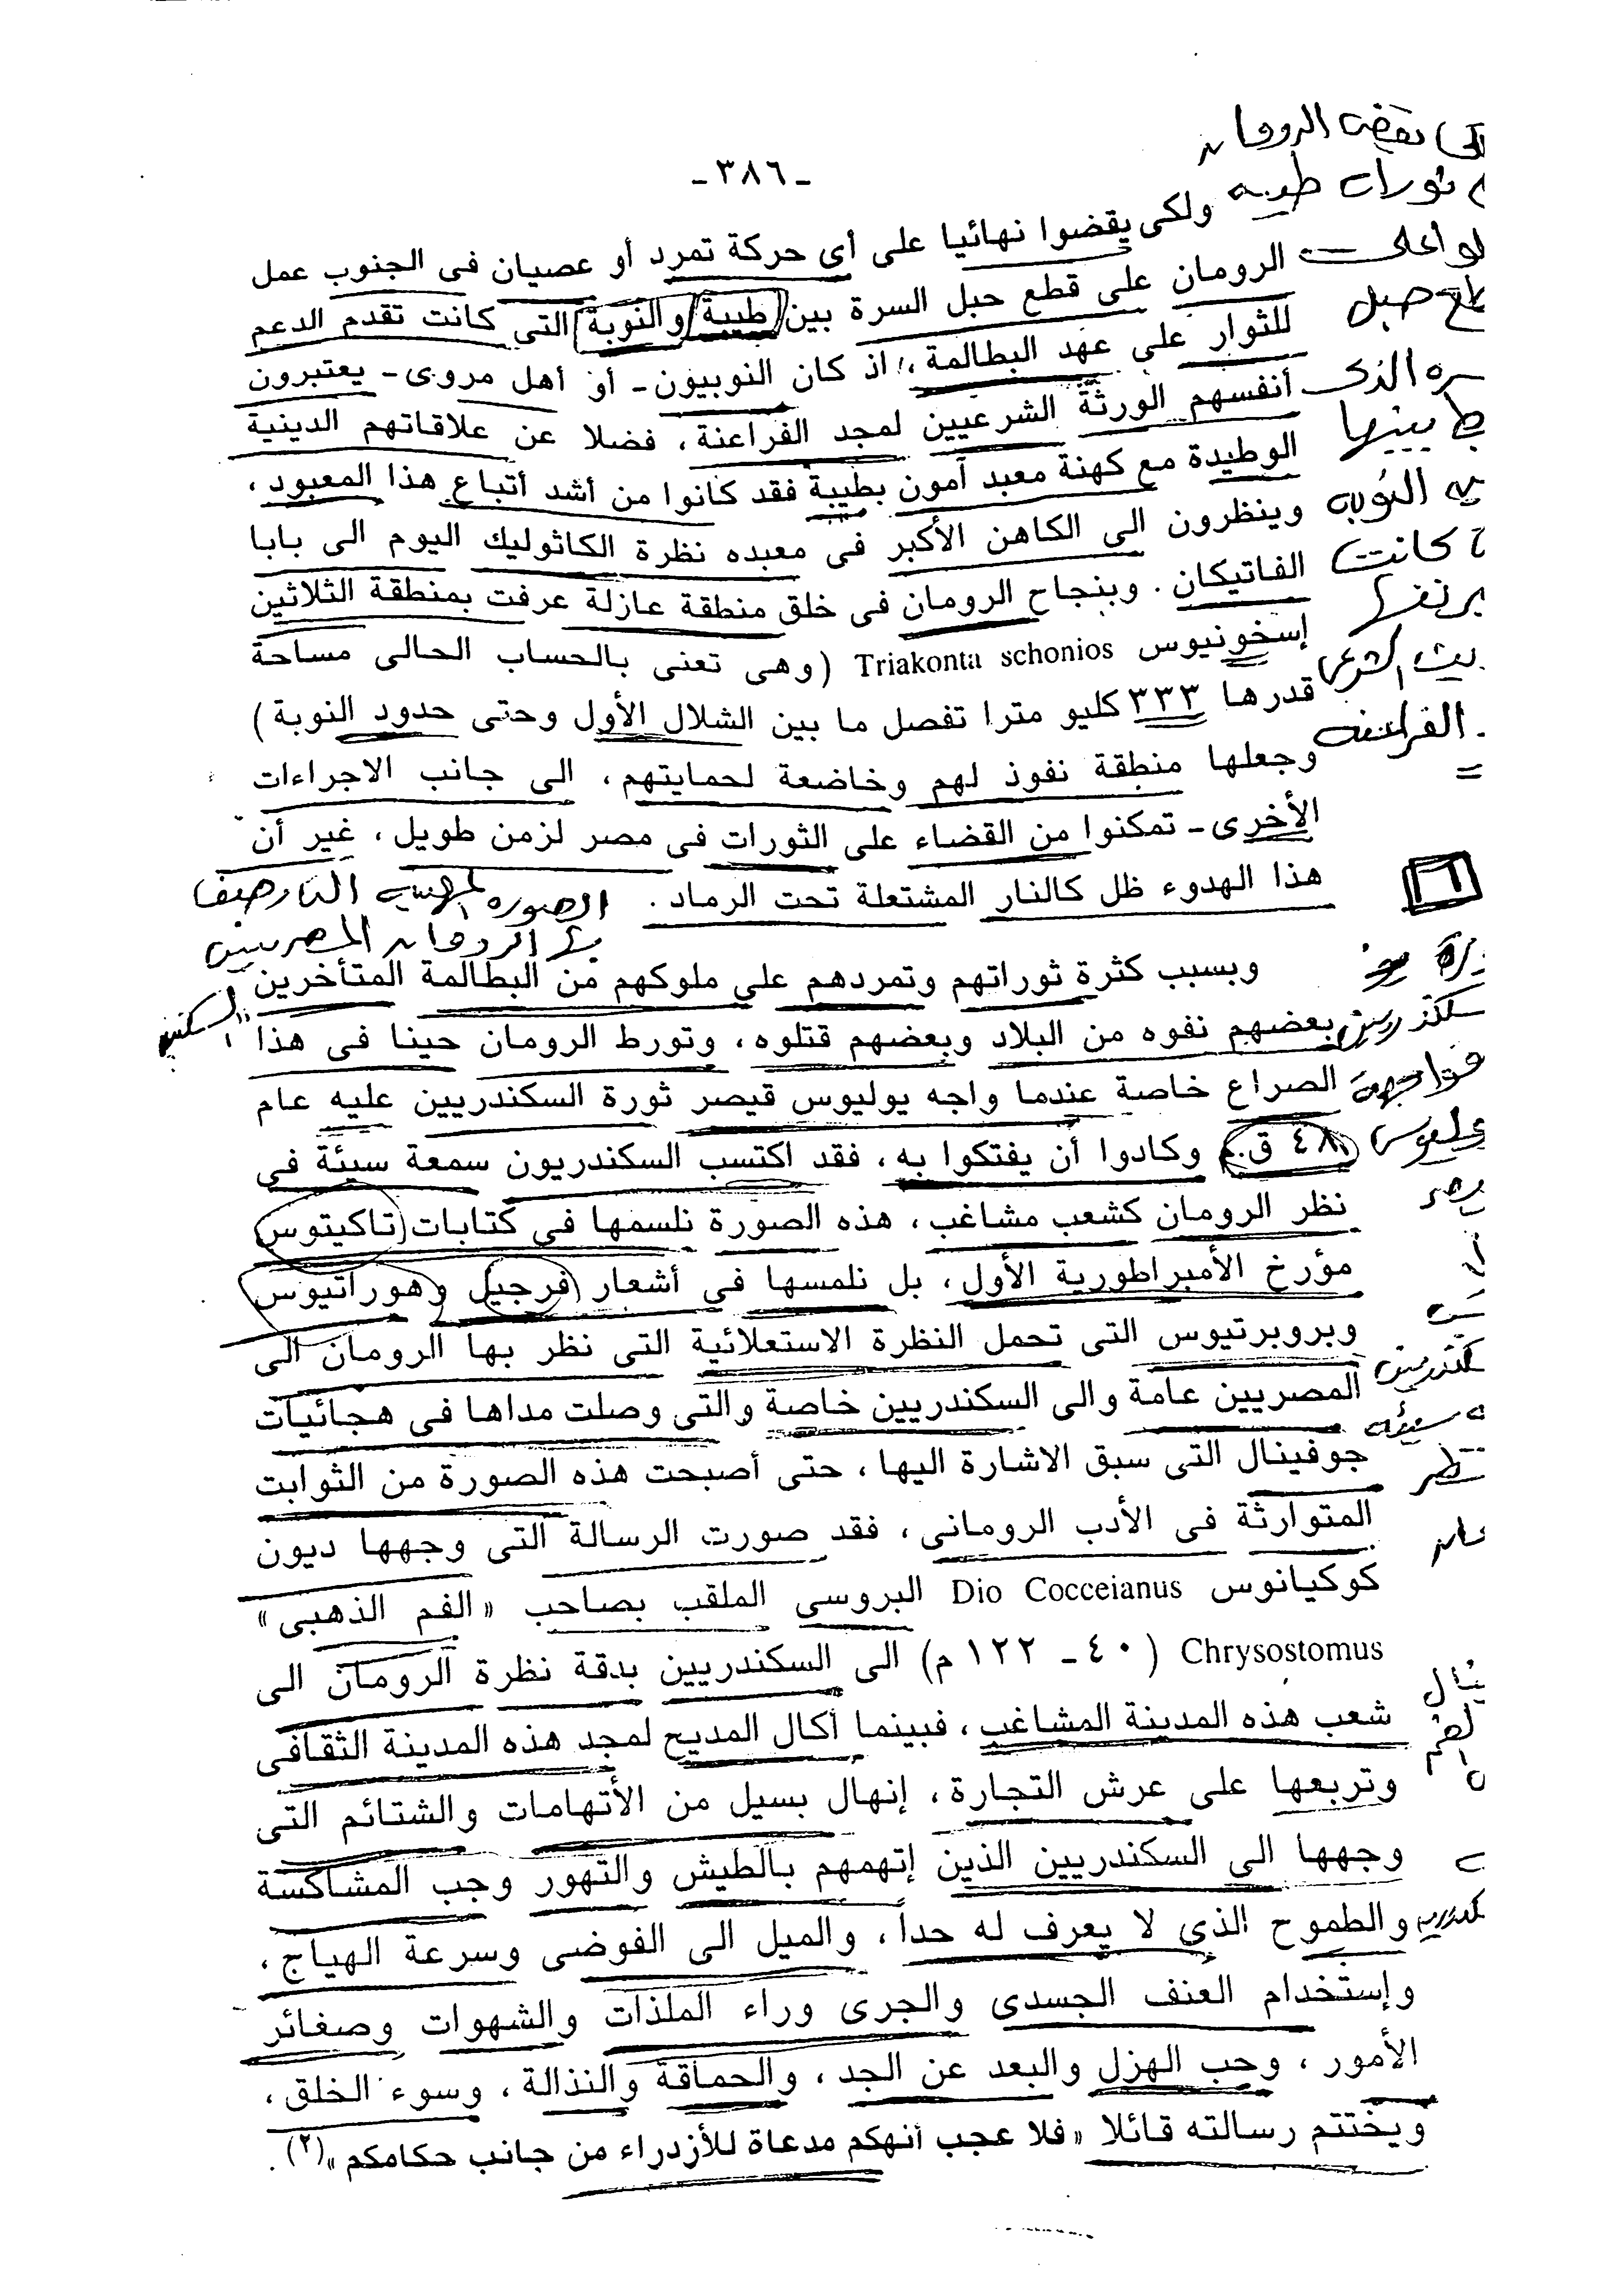 - ٣٨٦ -
ولكى يقضوا نهائيا على أى حركة تمرد أو عصيان فى الجنوب عمل
الرومان على قطع حبل السرة بين طيبة والنوبة التى كانت تقدم الدعم
للثوار على عهد البطالمة، اذ كان النوبيون - أو أهل مروى - يعتبرون
أنفسهم الورثة الشرعيين لمجد الفراعنة، فضلا عن علاقاتهم الدينية
الوطيدة مع كهنة معبد آمون بطيبة فقد كانوا من أشد أتباع هذا المعبود،
وينظرون الى الكاهن الأكبر فى معبده نظرة الكاثوليك اليوم الى بابا
الفاتيكان. وبنجاح الرومان فى خلق منطقة عازلة عرفت بمنطقة الثلاثين
إسخونيوس Triakonta schonios (وهى تعنى بالحساب الحالى مساحة
قدرها ٣٣٣ كليو مترا تفصل ما بين الشلال الأول وحتى حدود النوبة)
وجعلها منطقة نفوذ لهم وخاضعة لحمايتهم، الى جانب الاجراءات
الأخرى - تمكنوا من القضاء على الثورات فى مصر لزمن طويل، غير أن
هذا الهدوء ظل كالنار المشتعلة تحت الرماد.
وبسبب كثرة ثوراتهم وتمردهم على ملوكهم من البطالمة المتأخرين
بعضهم نفوه من البلاد وبعضهم قتلوه، وتورط الرومان حينا فى هذا
الصراع خاصة عندما واجه يوليوس قيصر ثورة السكندريين عليه عام
٤٨ ق.م وكادوا أن يفتكوا به، فقد اكتسب السكندريون سمعة سيئة فى
نظر الرومان كشعب مشاغب، هذه الصورة نلسمها فى كتابات تاكيتوس
مؤرخ الأمبراطورية الأول، بل نلمسها فى أشعار فرجيل وهوراتيوس
وبروبرتيوس التى تحمل النظرة الاستعلائية التى نظر بها الرومان الى
المصريين عامة والى السكندريين خاصة والتى وصلت مداها فى هجائيات
جوفينال التى سبق الاشارة اليها، حتى أصبحت هذه الصورة من الثوابت
المتوارثة فى الأدب الرومانى، فقد صورت الرسالة التى وجهها ديون
كوكيانوس Dio Cocceianus البروسى الملقب بصاحب «الفم الذهبى»
Chrysostomus (٤٠ - ١٢٢ م) الى السكندريين بدقة نظرة الرومان الى
شعب هذه المدينة المشاغب، فبينما أكال المديح لمجد هذه المدينة الثقافى
وتربعها على عرش التجارة، إنهال بسيل من الأتهامات والشتائم التى
وجهها الى السكندريين الذين إتهمهم بالطيش والتهور وجب المشاكسة
والطموح الذى لا يعرف له حداً، والميل الى الفوضى وسرعة الهياج،
وإستخدام العنف الجسدى والجرى وراء الملذات والشهوات وصغائر
الأمور، وحب الهزل والبعد عن الجد، والحماقة والنذالة، وسوء الخلق،
ويختتم رسالته قائلا «فلا عجب أنهكم مدعاة للأزدراء من جانب حكامكم»(٢).